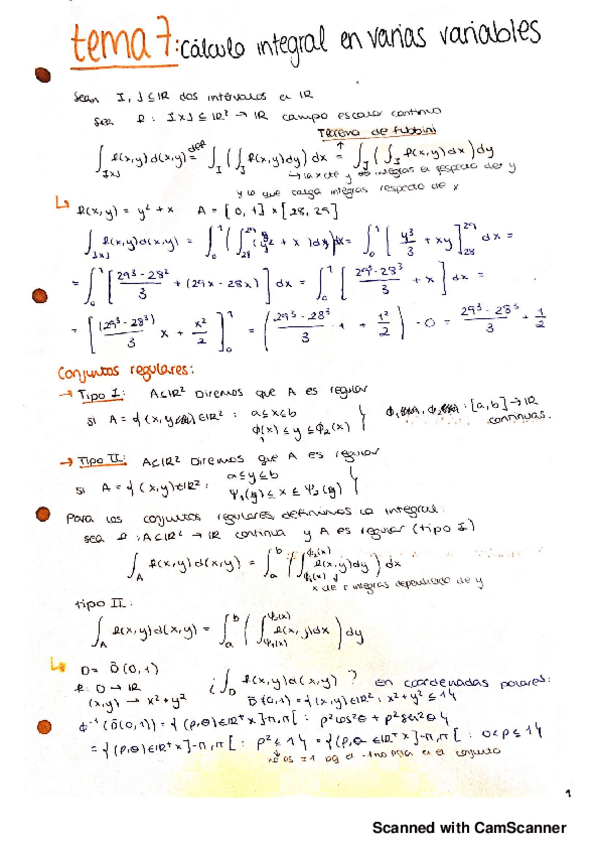 tema 7: cálculo integral en varias variables
Sean I, J ⊆ IR dos intervalos en IR
Sea f: I×J ⊆ IR² → IR campo escalar continuo
Teorema de fubbini
∫_{I×J} f(x,y)d(x,y) =^{def} ∫_I (∫_J f(x,y)dy) dx = ∫_J (∫_I f(x,y)dx) dy
→ la x cte y integras el respecto de y
y lo que salga integras respecto de x
f(x,y) = y² + x A = [0,1] × [28,29]
∫_{I×J} f(x,y)d(x,y) = ∫_0^1 (∫_{28}^{29} (y² + x)dy)dx = ∫_0^1 [y³/3 + xy]_{28}^{29} dx =
= ∫_0^1 [29³-28²/3 + (29x - 28x)] dx = ∫_0^1 [29³-28³/3 + x] dx =
= [(29³-28³)/3 x + x²/2]_0^1 = (29³-28³/3 · 1 + 1²/2) - 0 = 29³-28³/3 + 1/2
Conjuntos regulares:
→ Tipo I: A⊆IR² Diremos que A es regular
si A = {(x,y) ∈ IR² : a≤x≤b
ϕ₁(x) ≤ y ≤ ϕ₂(x)} ϕ₁, ϕ₂ : [a,b] → IR
continuas.
→ Tipo II: A⊆IR² Diremos que A es regular
si A = {(x,y)∈IR² : a≤y≤b
Ψ₁(y) ≤ x ≤ Ψ₂(y)}
Para los conjuntos regulares, definimos la integral:
sea f: A⊆IR² → IR continua y A es regular (tipo I)
∫_A f(x,y)d(x,y) = ∫_a^b (∫_{ϕ₁(x)}^{ϕ₂(x)} f(x,y)dy) dx
x cte integras dependiendo de y
tipo II.
∫_A f(x,y)d(x,y) = ∫_a^b (∫_{Ψ₁(x)}^{Ψ₂(x)} f(x,y)dx) dy
D = D̄(0,1) ¿∫_D f(x,y)d(x,y)? en coordenadas polares:
f: D → IR
(x,y) → x²+y² D̄(0,1) = {(x,y)∈IR² : x²+y² ≤ 1}
ϕ⁻¹(D̄(0,1)) = {(ρ,θ)∈IR⁺×]-π,π[ : ρ²cos²θ + ρ²sen²θ
= {(ρ,θ)∈IR⁺×]-π,π[ : ρ² ≤ 1} = {(ρ,θ ∈IR⁺×]-π,π[ : 0<ρ≤1}
el conjunto
1
Scanned with CamScanner